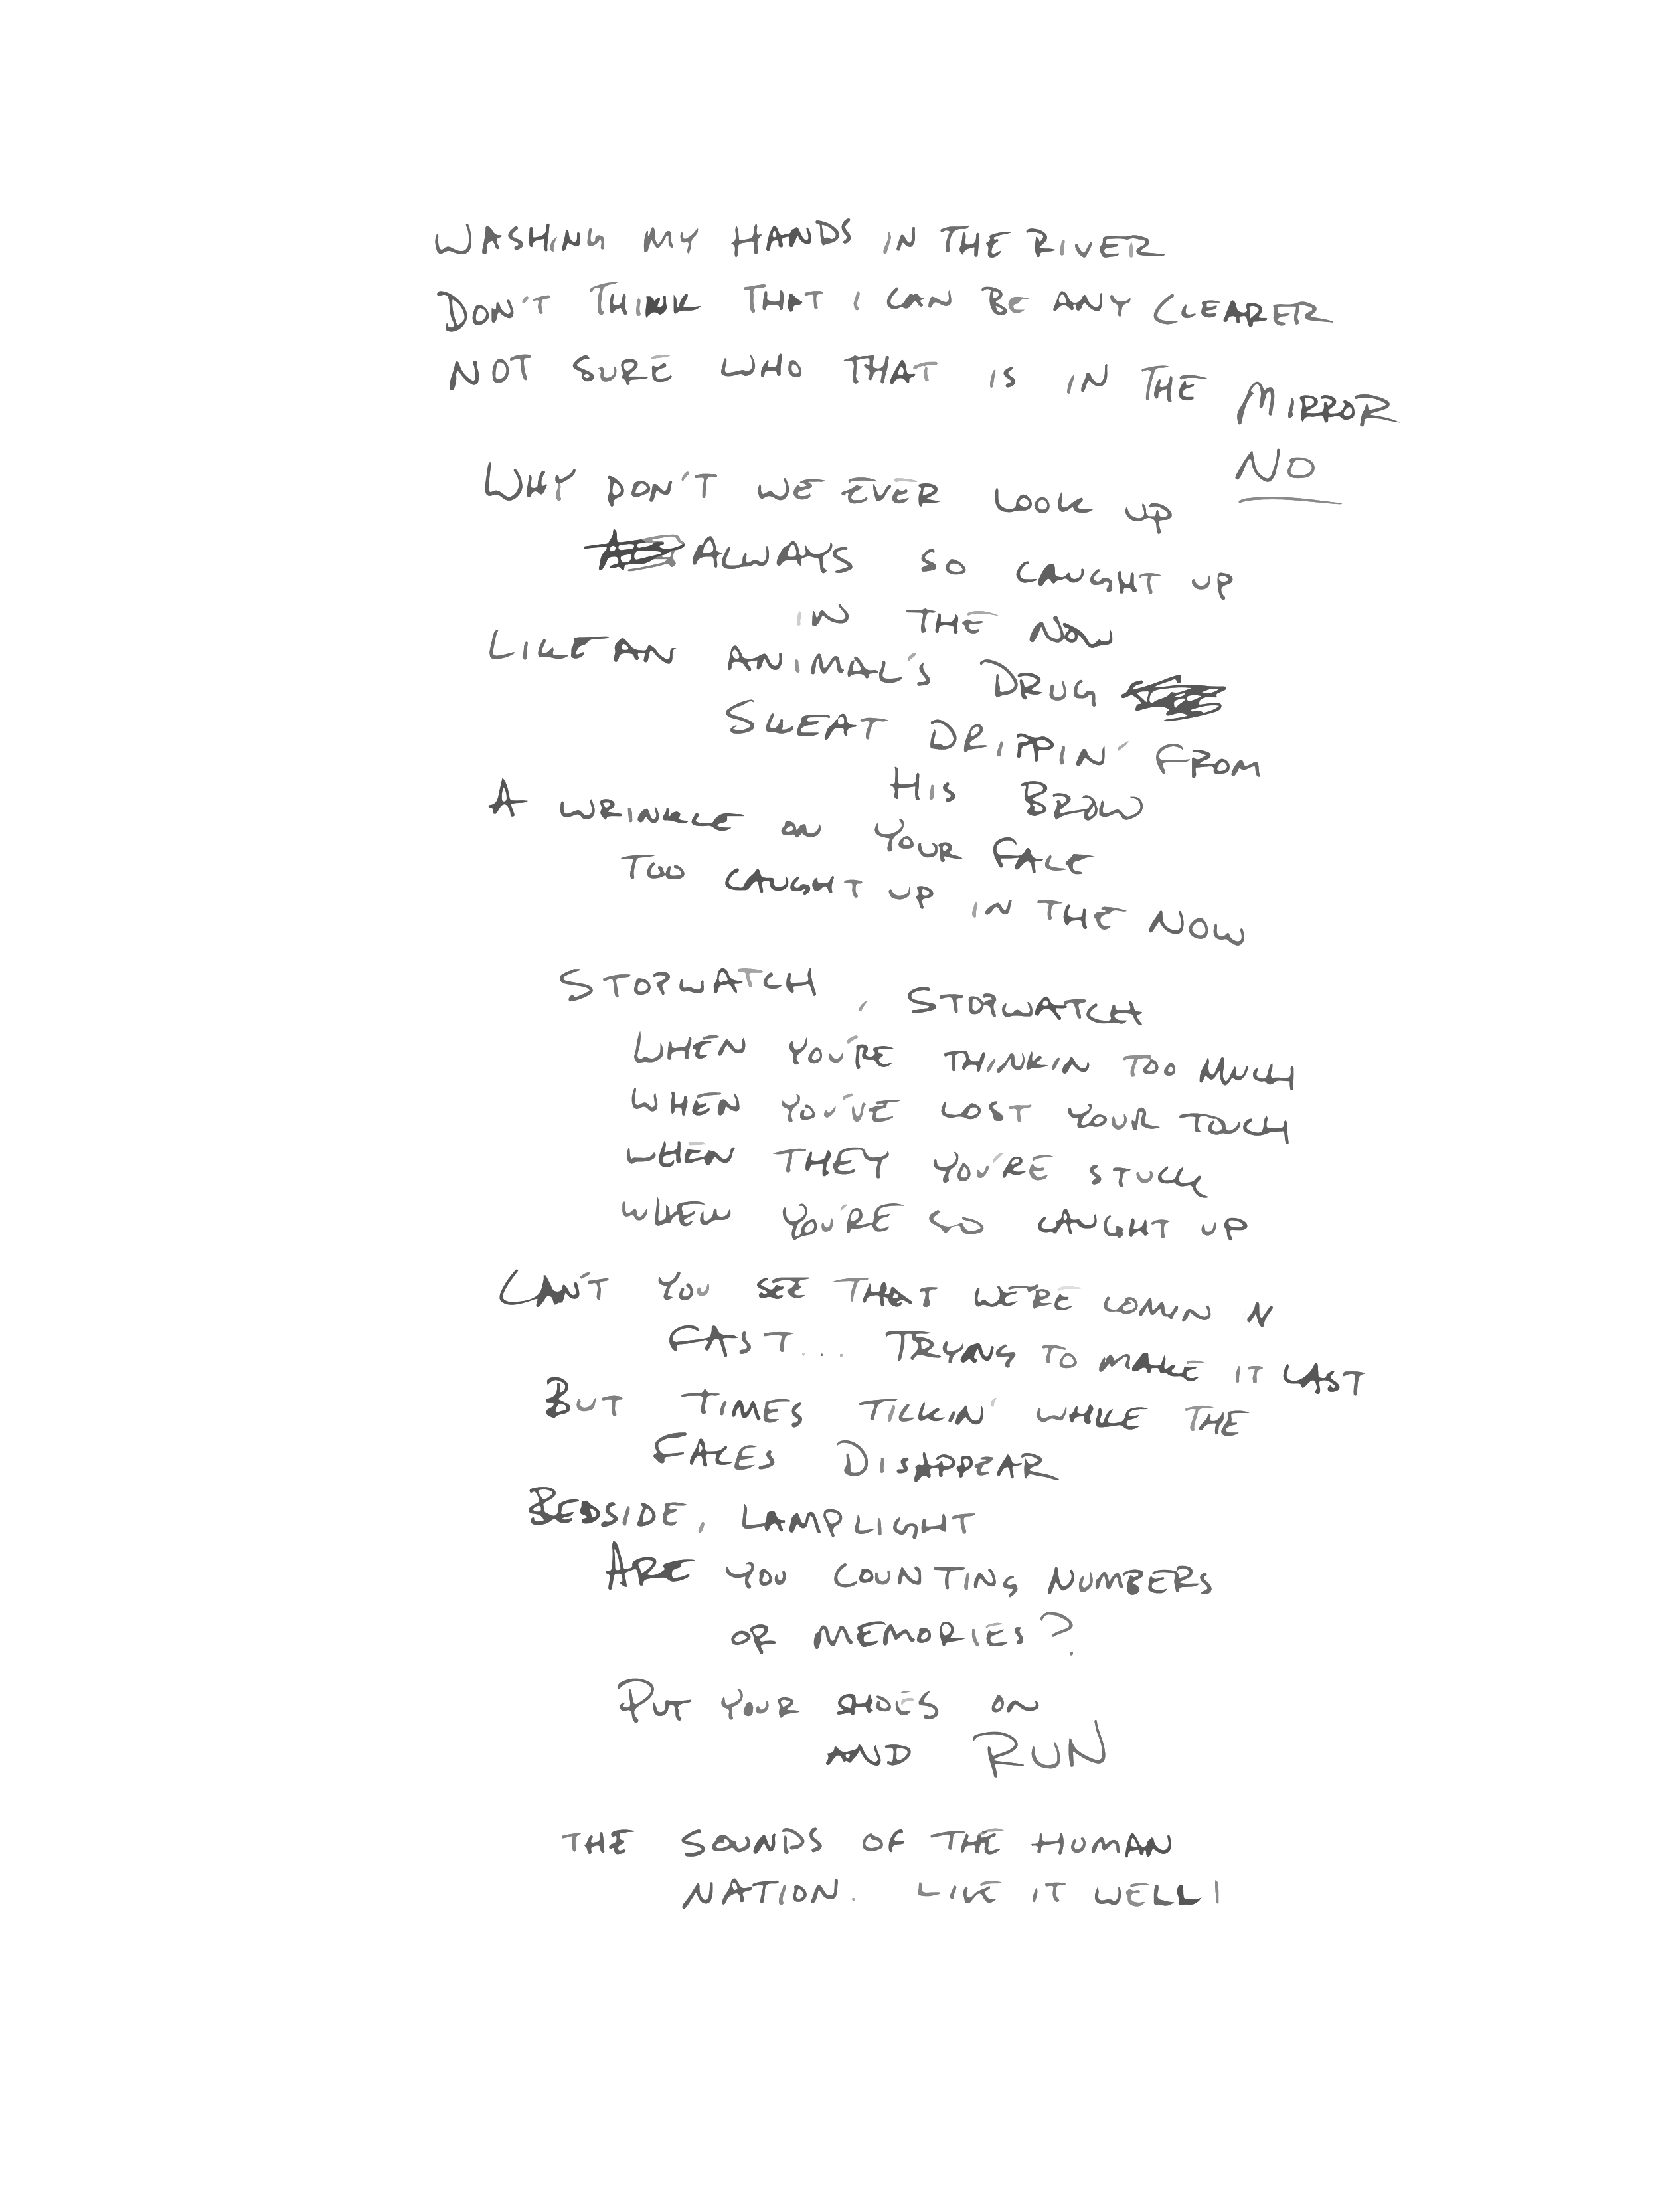 WASHING MY HANDS IN THE RIVER
DON'T THINK THAT I CAN BE ANY CLEARER
NOT SURE WHO THAT IS IN THE MIRROR
NO
WHY DON'T WE EVER LOOK UP
ALWAYS SO CAUGHT UP
IN THE NOW
LIKE AN ANIMAL'S DRUG
SWEAT DRIPPIN' FROM
HIS BROW
A WRINKLE ON YOUR FACE
TOO CAUGHT UP IN THE NOW
STOPWATCH, STOPWATCH
WHEN YOU'RE THINKIN TOO MUCH
WHEN YOU'VE LOST YOUR TOUCH
WHEN THEY YOU'RE STUCK
WHEN YOU'RE SO CAUGHT UP
CAN'T YOU SEE THAT WE'RE COMIN N
FAST... TRYANG TO MAKE IT LAST
BUT TIMES TICKIN' WHILE THE
FACES DISAPPEAR
BEDSIDE, LAMPLIGHT
ARE YOU COUNTING NUMBERS
OR MEMORIES?
PUT YOUR SHOES ON
AND RUN
THE SOUNDS OF THE HUMAN
NATION. LIVE IT WELL!